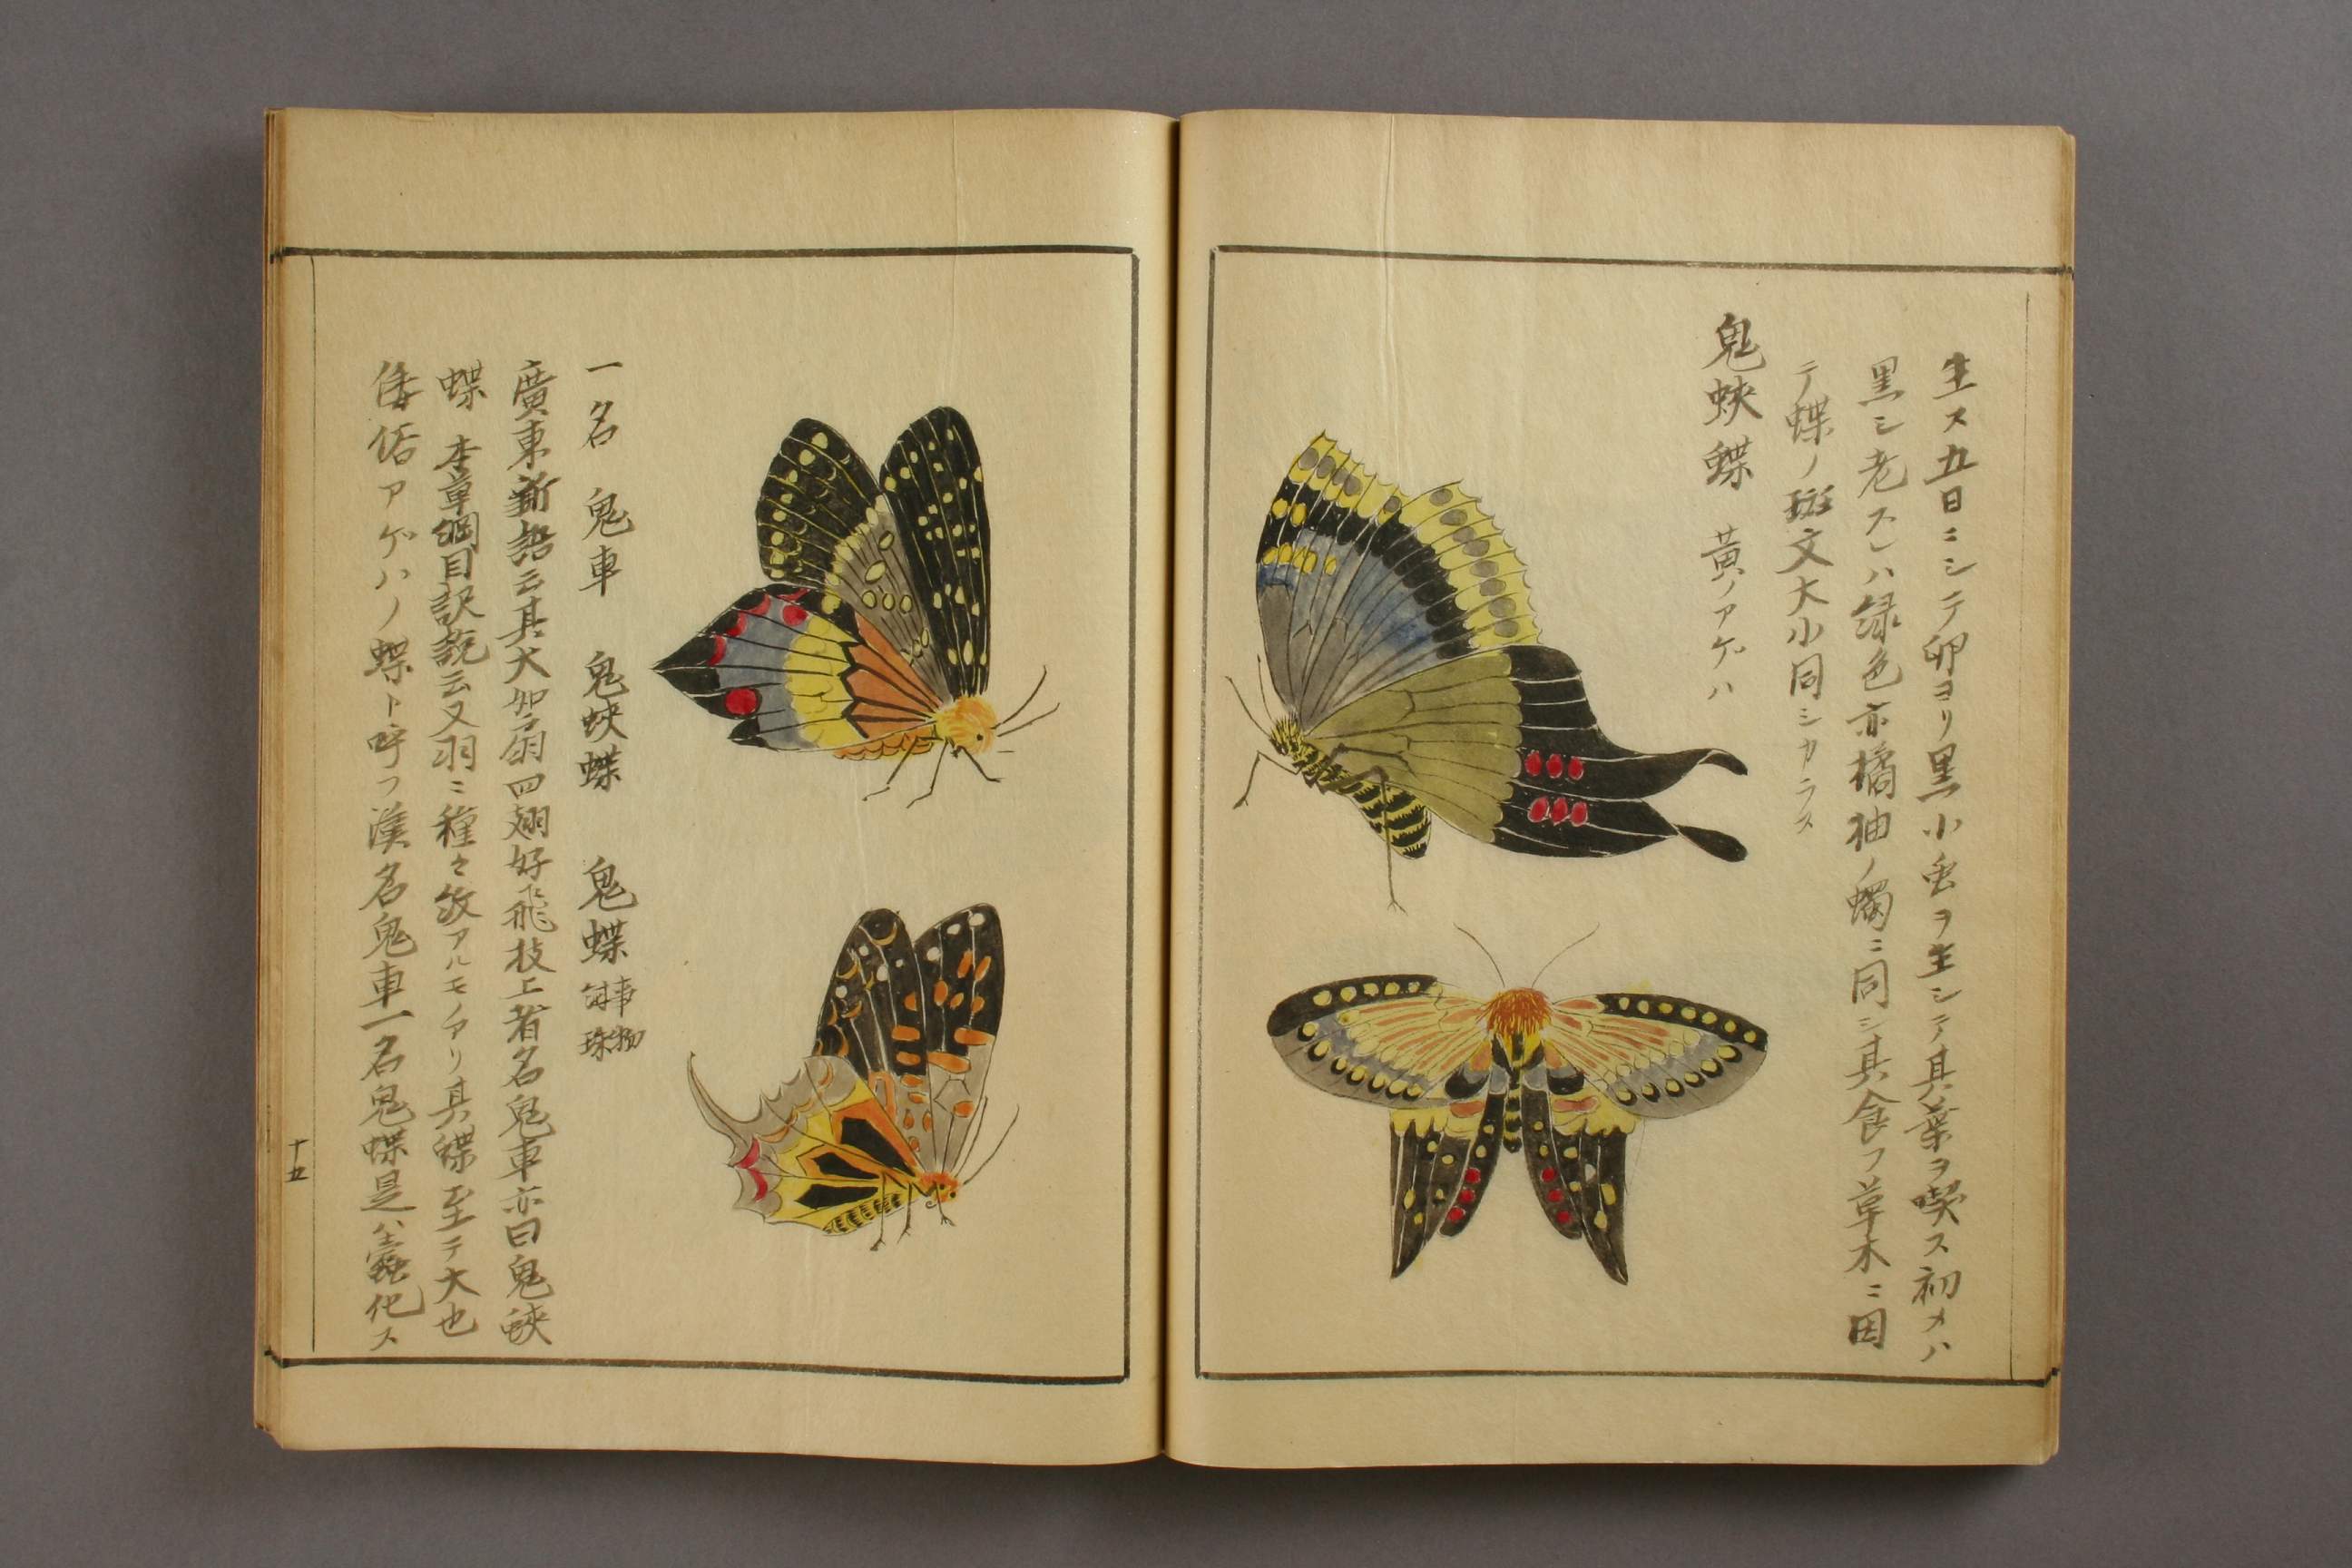 生ス五日ニシテ卵ヨリ黒小虫ヲ生シテ其葉ヲ喫ス初メハ
黒シ老スレハ緑色亦橘柚ノ蠋ニ同シ其食フ草木ニ因
テ蝶ノ斑文大小同シカラス
鬼蛺蝶 黄ノアゲハ
一名 鬼車 鬼蛺蝶 鬼蝶 事物紺珠
廣東新語云其大如扇四翅好飛技上者名鬼車亦曰鬼蛺
蝶 本草綱目訳説云又羽ニ種々紋アルモノアリ其蝶至テ大也
倭俗アゲハノ蝶ト呼フ漢名鬼車一名鬼蝶是ハ蠧化ス
十五